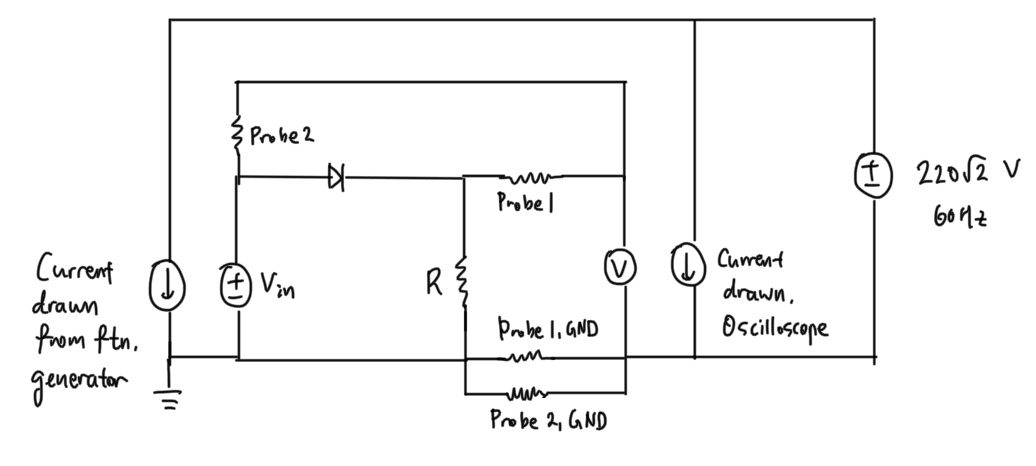 Probe 2
220√2 V
60Hz
Probe 1
Current
drawn
from ftn.
generator
±
Vin
R
V
Current
drawn.
Oscilloscope
±
Probe 1, GND
Probe 2, GND